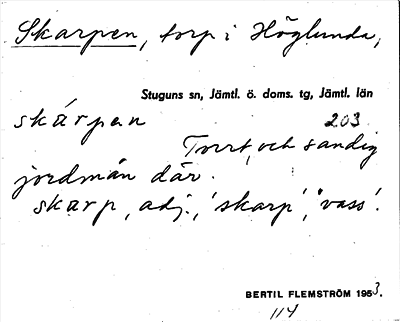 Skarpen, torp i Höglunda,
Stuguns sn, Jämtl. ö. doms. tg, Jämtl. län
skárpen 203
Torrt och sandig
jordmån där.
skarp, adj., 'skarp', 'vass'.
BERTIL FLEMSTRÖM 1953.
114